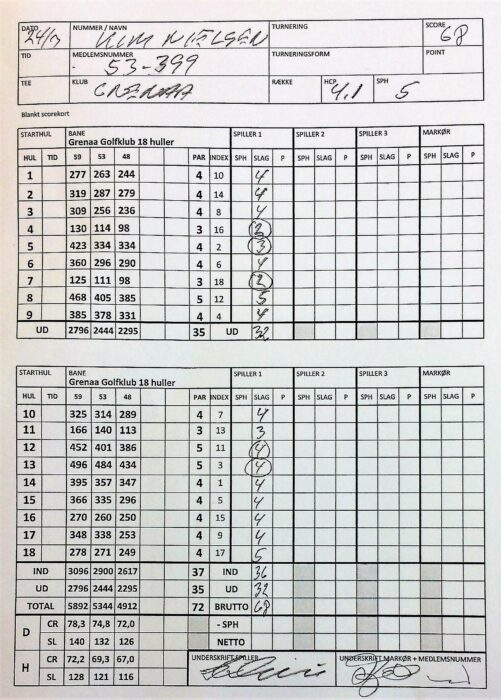 DATO 24/7 NUMMER / NAVN KIM NIELSEN TURNERING SCORE 68
TID MEDLEMSNUMMER - 53-399 TURNERINGSFORM POINT
TEE KLUB GRENAA RÆKKE HCP 4,1 SPH 5
Blankt scorekort
STARTHUL BANE Grenaa Golfklub 18 huller SPILLER 1 SPILLER 2 SPILLER 3 MARKØR
HUL TID 59 53 48 PAR INDEX SPH SLAG P SPH SLAG P SPH SLAG P SPH SLAG P
1 277 263 244 4 10 4
2 319 287 279 4 14 4
3 309 256 236 4 8 4
4 130 114 98 3 16 2
5 423 334 334 4 2 3
6 360 296 290 4 6 4
7 125 111 98 3 18 2
8 468 405 385 5 12 5
9 385 378 331 4 4 4
UD 2796 2444 2295 35 UD 32
STARTHUL BANE Grenaa Golfklub 18 huller SPILLER 1 SPILLER 2 SPILLER 3 MARKØR
HUL TID 59 53 48 PAR INDEX SPH SLAG P SPH SLAG P SPH SLAG P SPH SLAG P
10 325 314 289 4 7 4
11 166 140 113 3 13 3
12 452 401 386 5 11 4
13 496 484 434 5 3 4
14 395 357 347 4 1 4
15 366 335 296 4 5 4
16 270 260 250 4 15 4
17 348 338 253 4 9 4
18 278 271 249 4 17 5
IND 3096 2900 2617 37 IND 36
UD 2796 2444 2295 35 UD 32
TOTAL 5892 5344 4912 72 BRUTTO 68
D CR 78,3 74,8 72,0 - SPH
SL 140 132 126 NETTO
H CR 72,2 69,3 67,0 UNDERSKRIFT SPILLER UNDERSKRIFT MARKØR + MEDLEMSNUMMER
SL 128 121 116